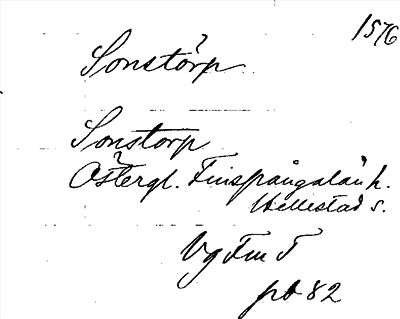 1576
Sonstörp
Sonstorp
Östergl. Finspångalän h.
Hellestad s.
Vg Fm T
pb 82